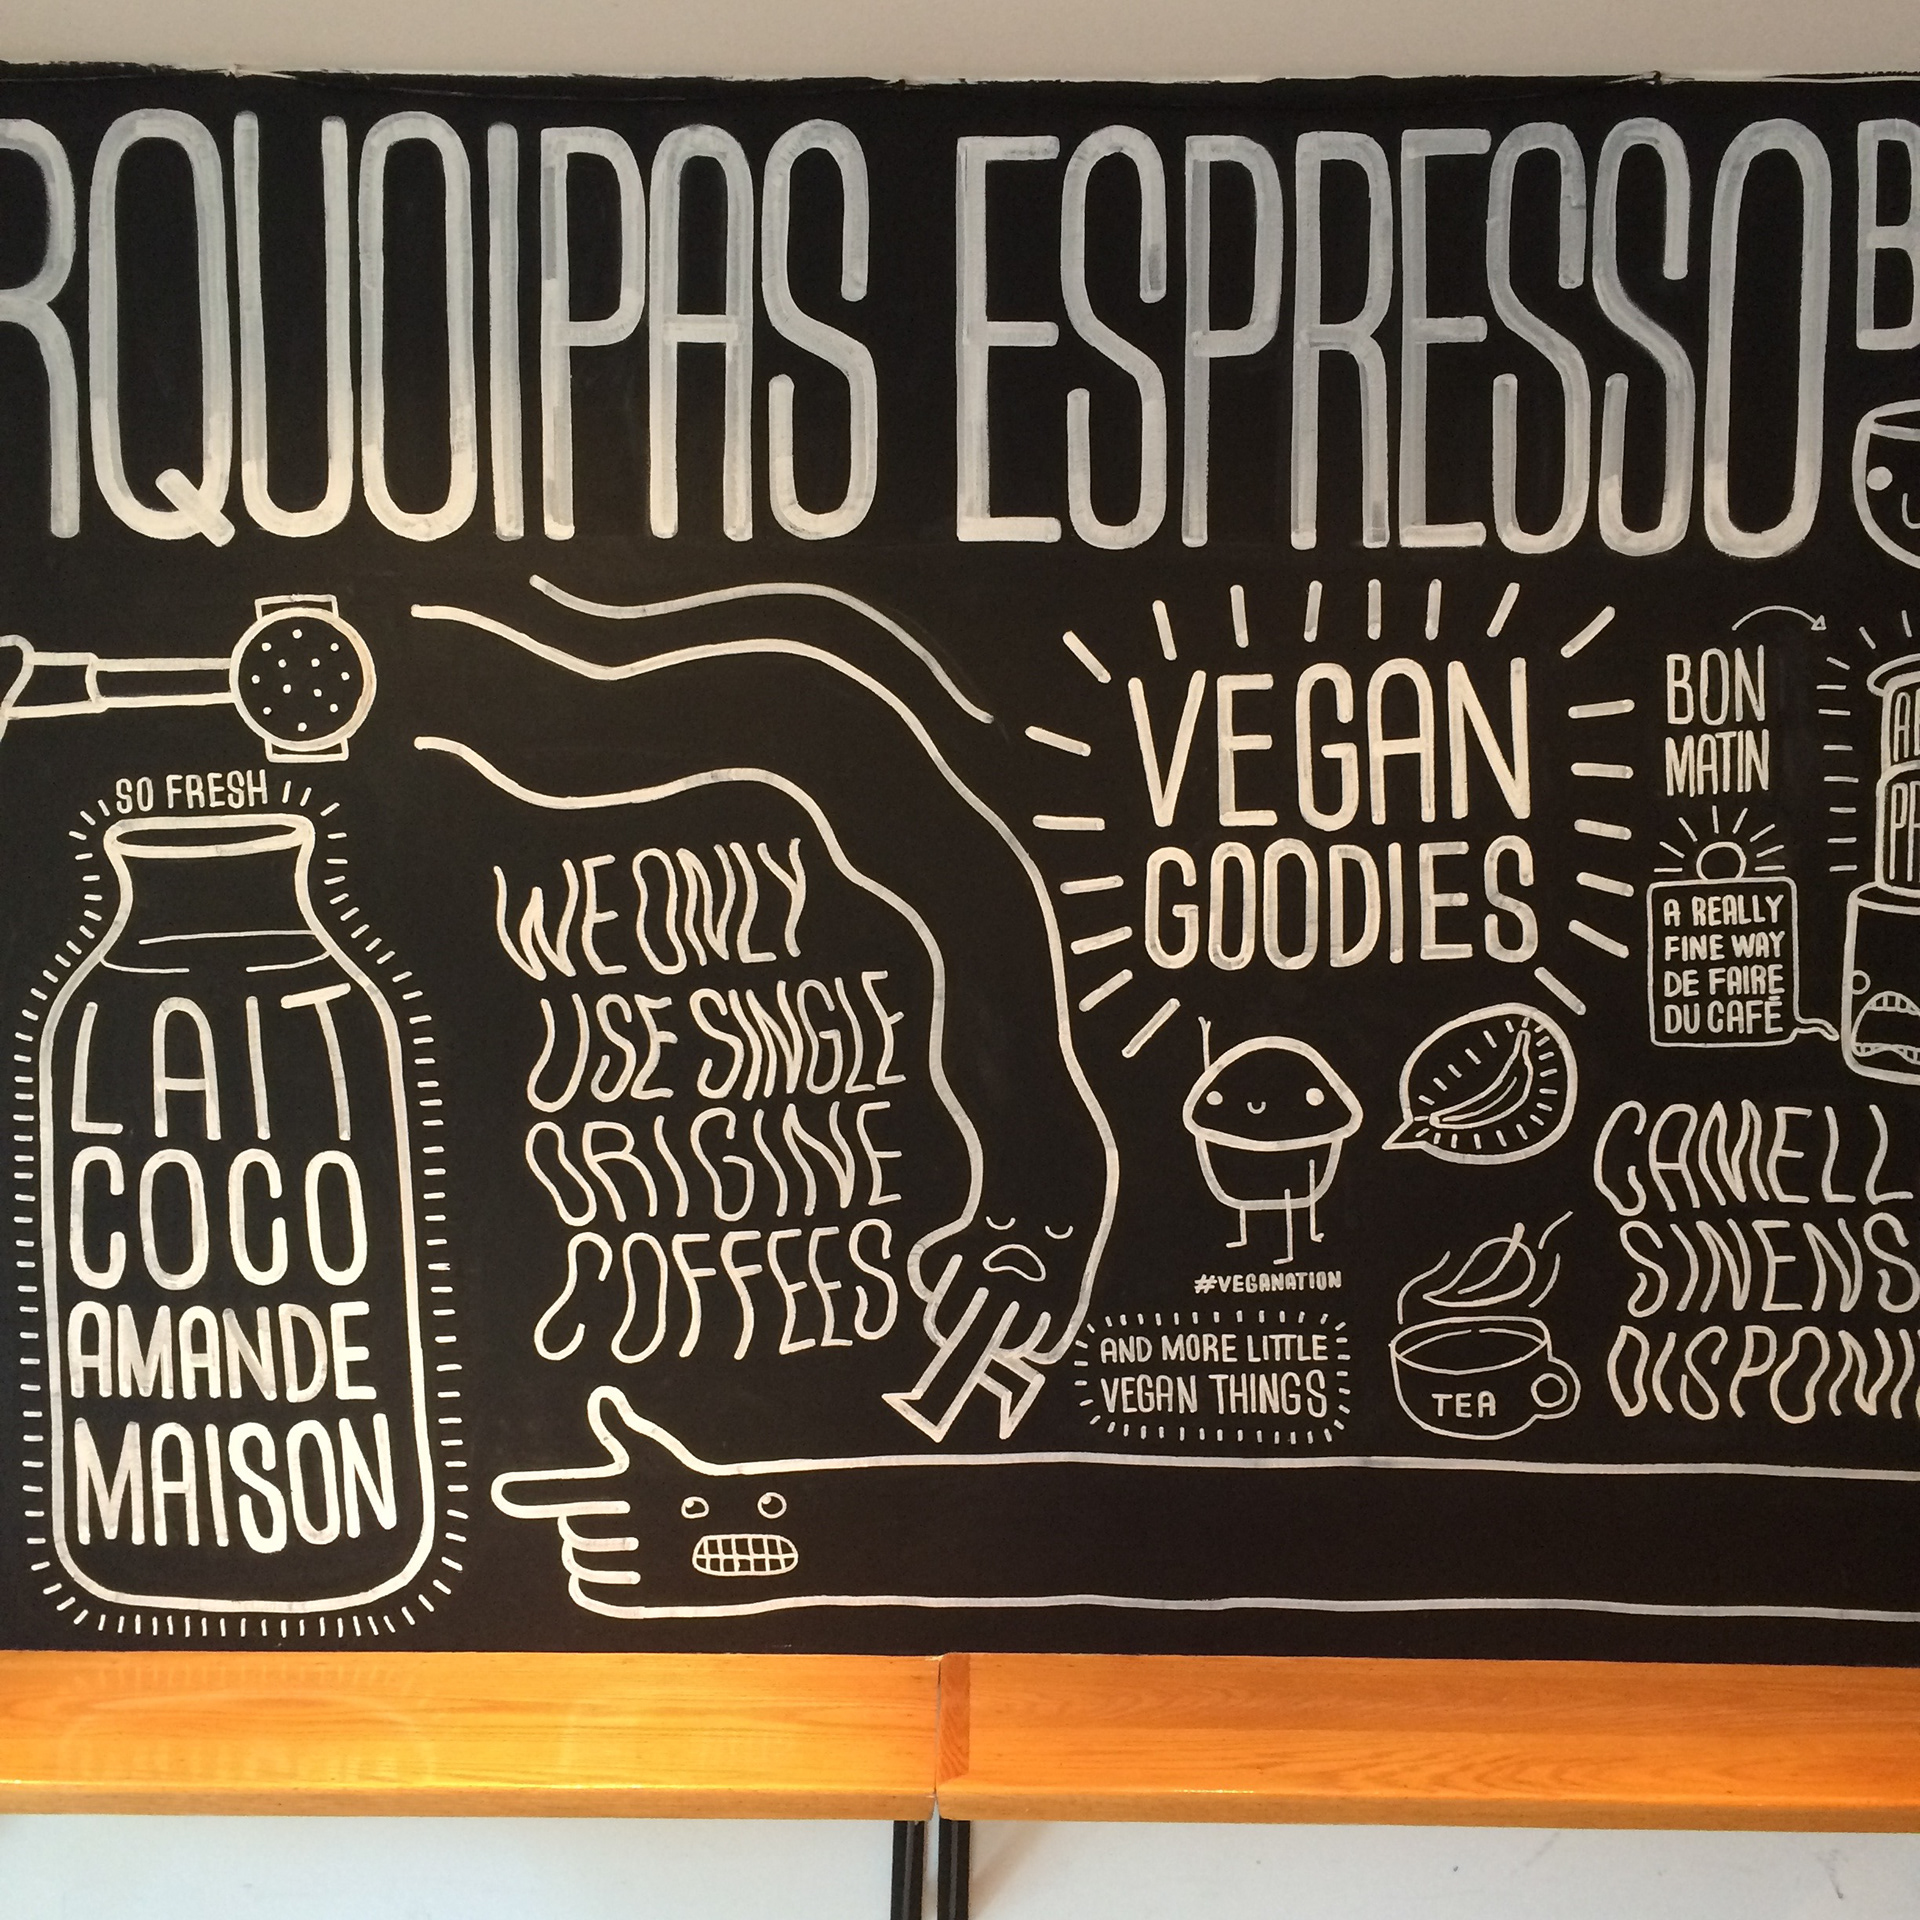 RQUOIPAS ESPRESSO B
SO FRESH
LAIT
COCO
AMANDE
MAISON
WE ONLY
USE SINGLE
ORIGINE
COFFEES
VEGAN
GOODIES
#VEGANATION
AND MORE LITTLE
VEGAN THINGS
TEA
BON
MATIN
A REALLY
FINE WAY
DE FAIRE
DU CAFÉ
CAMELL
SINENS
DISPONI